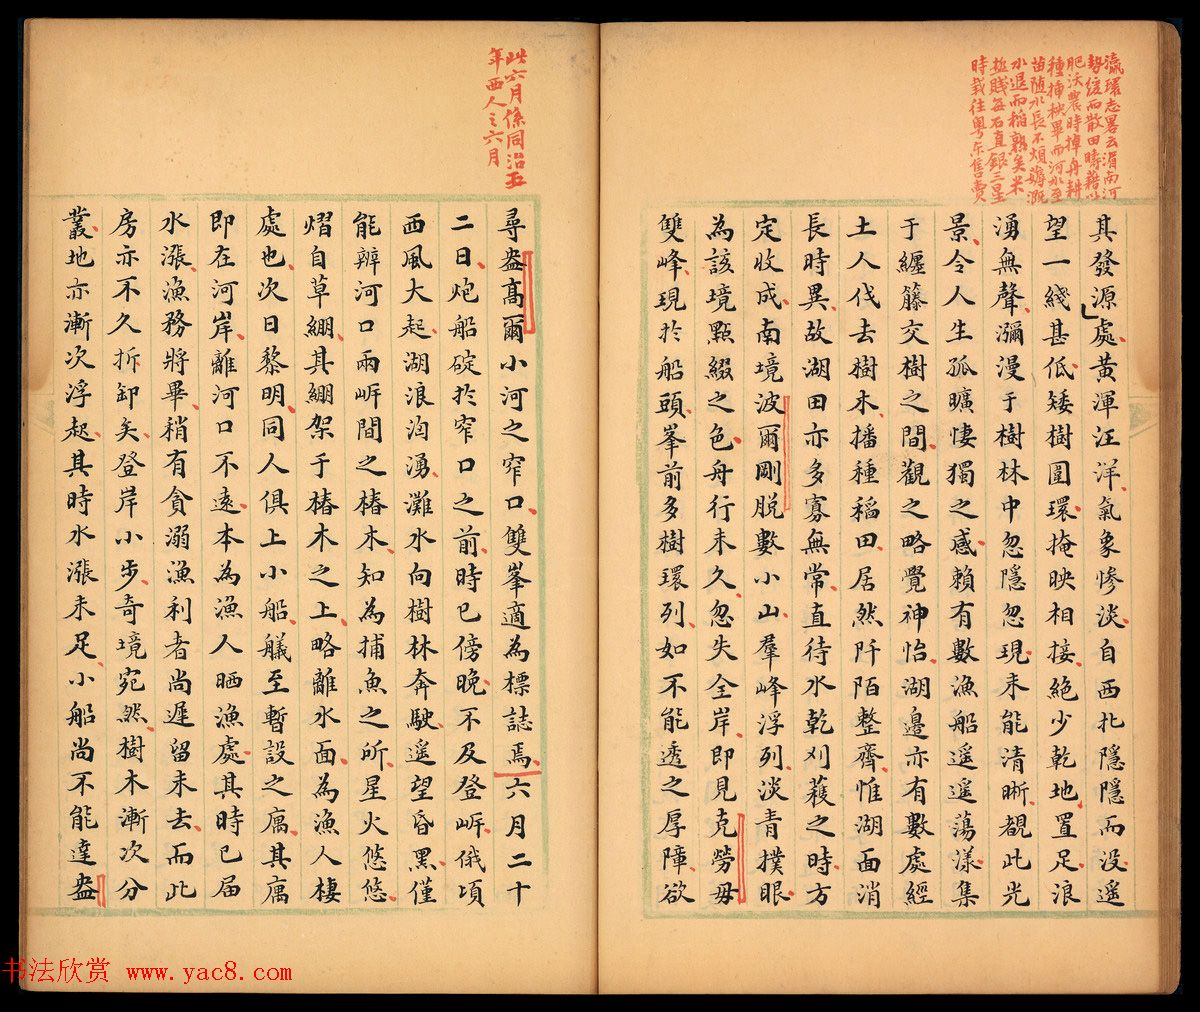 瀛環志畧云湄南河
勢緩而散田疇藉以
肥沃農時掉舟耕
種插秧畢而河水至
苗隨水長不煩溉
水退而稻熟矣米
極賤每石直銀三星
時載往粤東售賣
其發源處黃渾汪洋氣象慘淡自西北隱隱而沒遥
望一綫甚低矮樹圍環掩映相接絕少乾地置足浪
湧無聲瀰漫于樹林中忽隱忽現未能清晰覩此光
景令人生孤曠悽獨之感賴有數漁船遥遥蕩漾集
于纏籐交樹之間觀之略覺神怡湖邊亦有數處經
土人伐去樹木播種稻田居然阡陌整齊惟湖面消
長時異故湖田亦多寡無常直待水乾刈穫之時方
定收成南境波爾剛脱數小山羣峰浮列淡青撲眼
為該境點綴之色舟行未久忽失全岸即見克勞毋
雙峰現於船頭峯前多樹環列如不能透之厚障欲
此六月係同治五
年西人之六月
尋盎高爾小河之窄口雙峯適為標誌焉六月二十
二日炮船碇於窄口之前時已傍晚不及登岍俄頃
西風大起湖浪洶湧灘水向樹林奔駛遥望昏黑僅
能辨河口兩岍間之椿木知為捕魚之所星火悠悠
熠自草綳其綳架于椿木之上略離水面為漁人棲
處也次日黎明同人俱上小船艤至暫設之厲其厲
即在河岸離河口不遠本為漁人晒漁處其時已届
水漲漁務將畢稍有貪溺漁利者尚遲留未去而此
房亦不久拆卸矣登岸小步奇境宛然樹木漸次分
叢地亦漸次浮起其時水漲未足小船尚不能達盎
书法欣赏 www.yac8.com